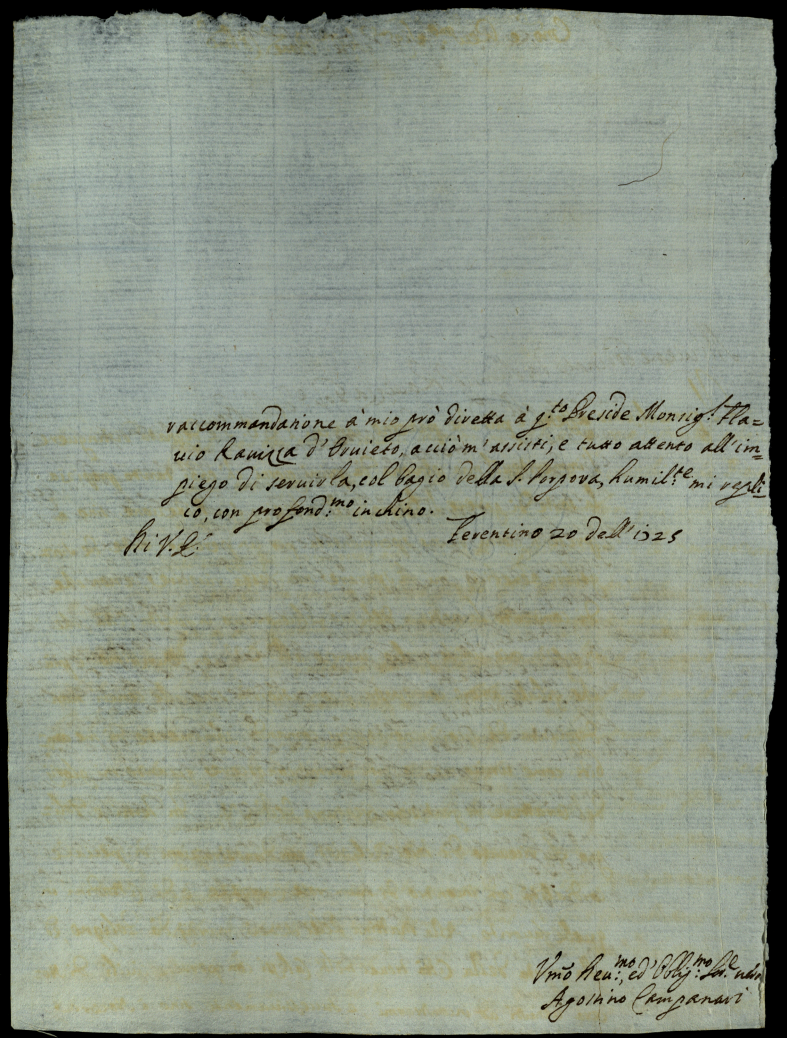 raccommandazione à mio prò diretta à q.to Preside Monsig.r Fla=
uio Rauizza d'Oruieto, acciò m'assisti, e tutto attento all'im=
piego di seruirla, col bagio della S. Porpora, humil.te mi repli=
co, con profond.mo inchino.
Di V. E.
Ferentino 20 dell' 1725
Vmo Reu.mo, ed' Obblig.mo Se.e
Agostino Campanari